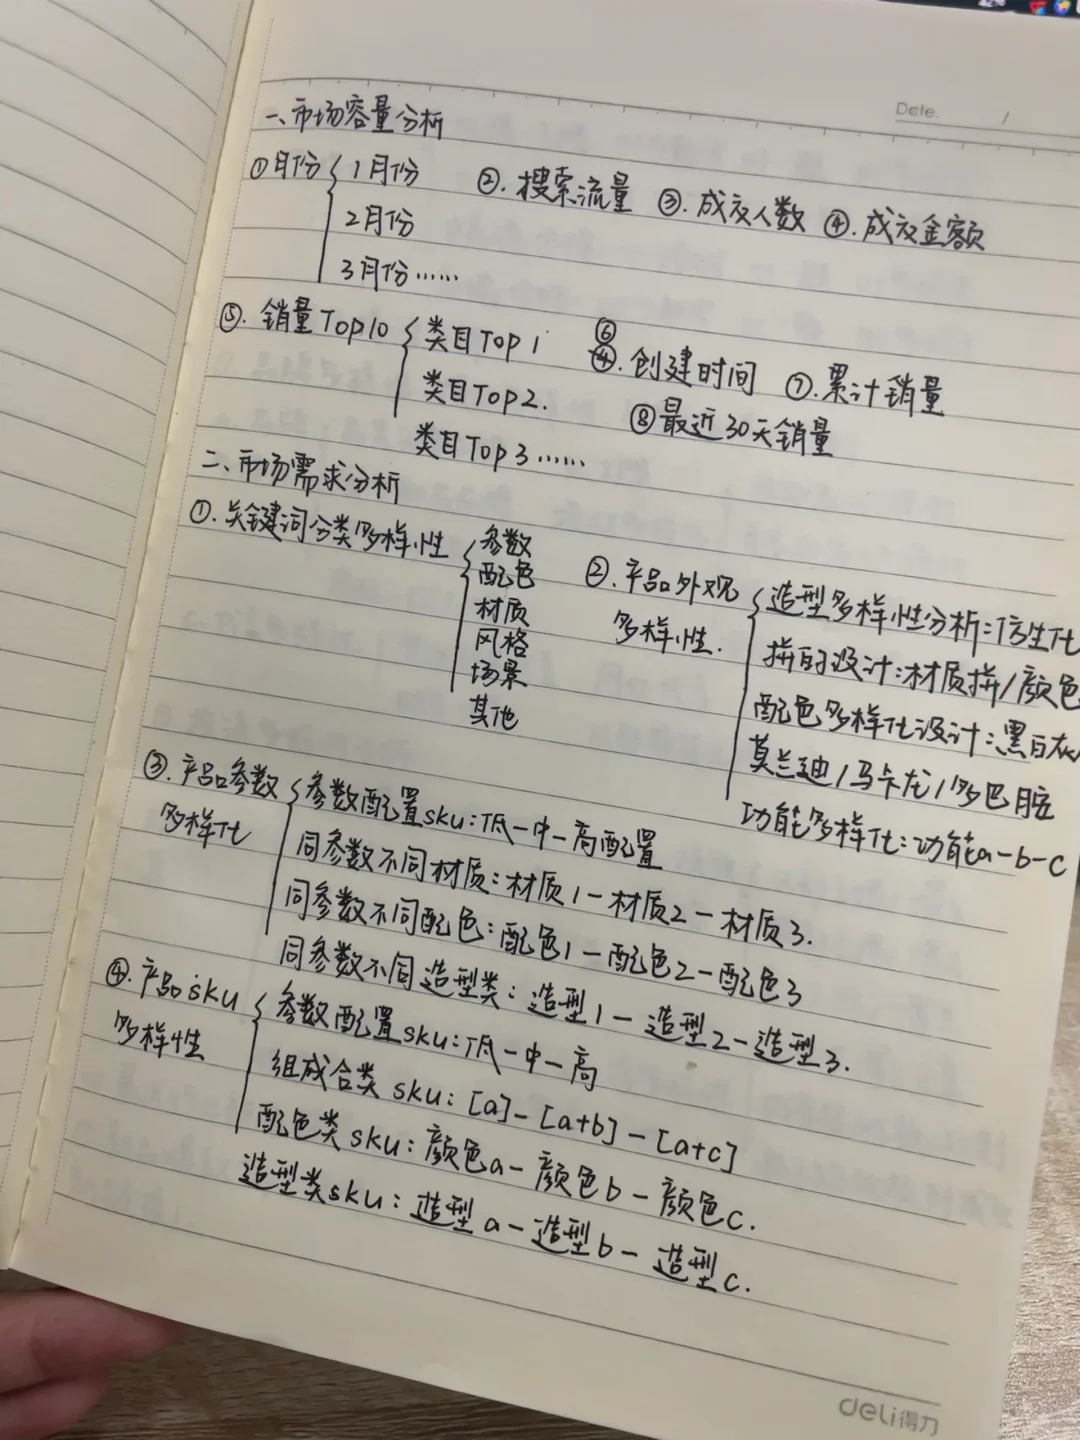 Date. /
一、市场容量分析
①月份 1月份 ②.搜索流量 ③.成交人数 ④.成交金额
2月份
3月份……
⑤.销量Top10 类目Top1 ⑥.创建时间 ⑦.累计销量
类目Top2. ⑧最近30天销量
类目Top3……
二、市场需求分析
①.关键词分类多样性 参数
配色
材质
风格
场景
其他
②.产品外观多样性. 造型多样性分析:仿生化
拼的设计:材质拼/颜色
配色多样化设计:黑白灰
莫兰迪/马卡龙/多巴胺
功能多样化:功能a-b-c
③.产品参数多样化 参数配置sku:低-中-高配置
同参数不同材质:材质1-材质2-材质3.
同参数不同配色:配色1-配色2-配色3
同参数不同造型类:造型1-造型2-造型3.
④.产品sku多样性 参数配置sku:低-中-高
组成合类sku:[a]-[a+b]-[a+c]
配色类sku:颜色a-颜色b-颜色c.
造型类sku:造型a-造型b-造型c.
deli得力